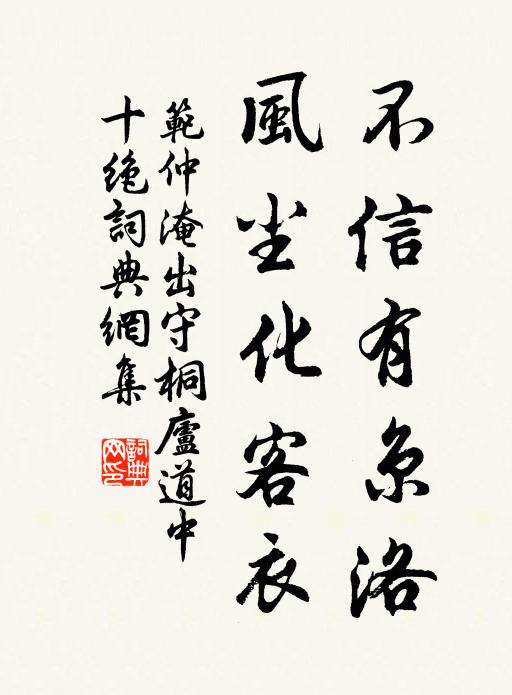 不信有京洛
風尘化客衣
範仲淹出守桐廬道中
十绝詞典網集
詞典网印